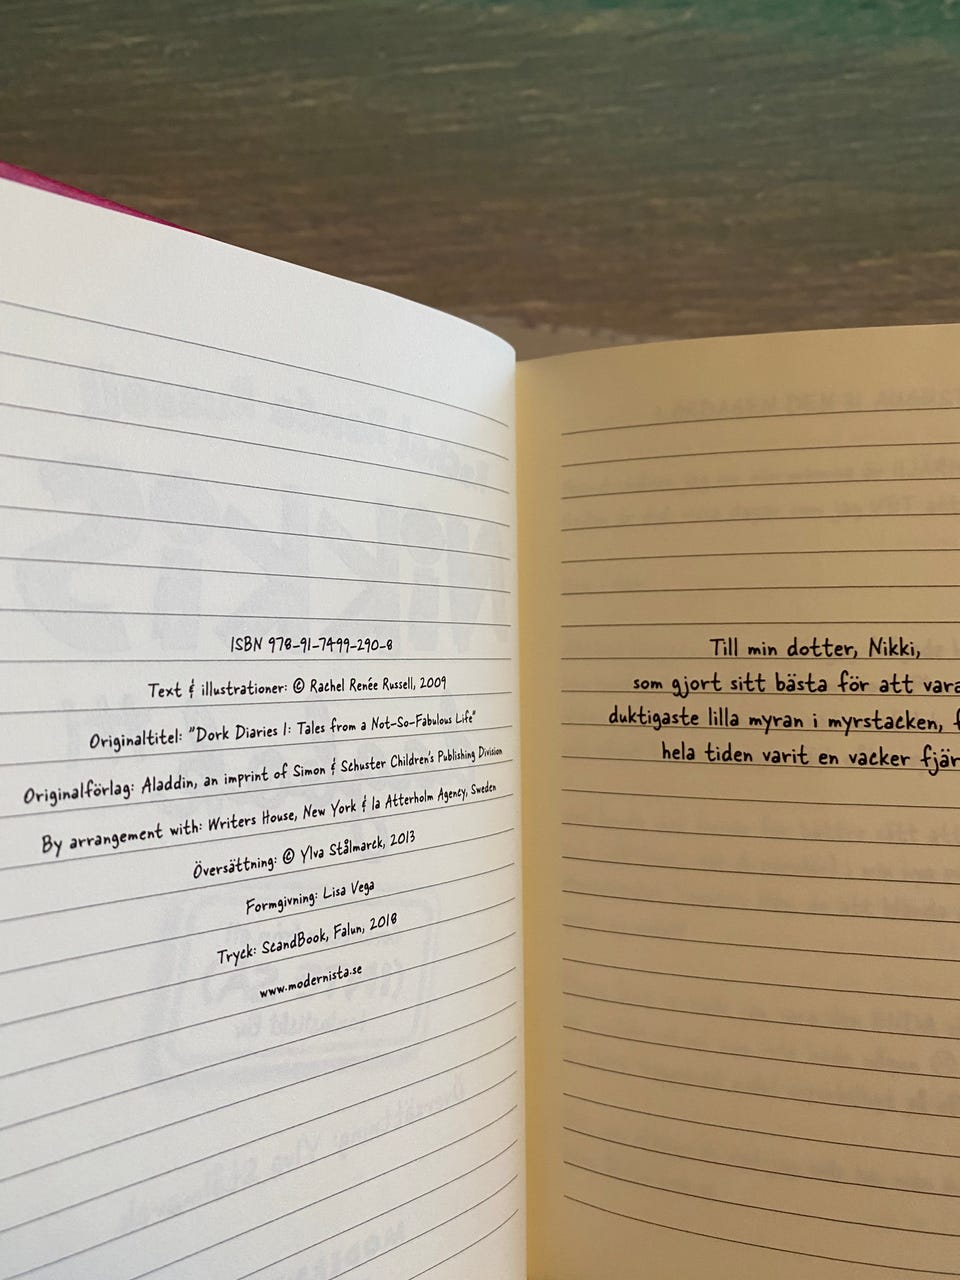 ISBN 978-91-7499-290-8
Text & illustrationer: © Rachel Renée Russell, 2009
Originaltitel: "Dork Diaries 1: Tales from a Not-So-Fabulous Life"
Originalförlag: Aladdin, an imprint of Simon & Schuster Children's Publishing Division
By arrangement with: Writers House, New York & la Atterholm Agency, Sweden
Översättning: © Ylva Stålmarck, 2013
Formgivning: Lisa Vega
Tryck: ScandBook, Falun, 2018
www.modernista.se
Till min dotter, Nikki,
som gjort sitt bästa för att vara
duktigaste lilla myran i myrstacken,
hela tiden varit en vacker